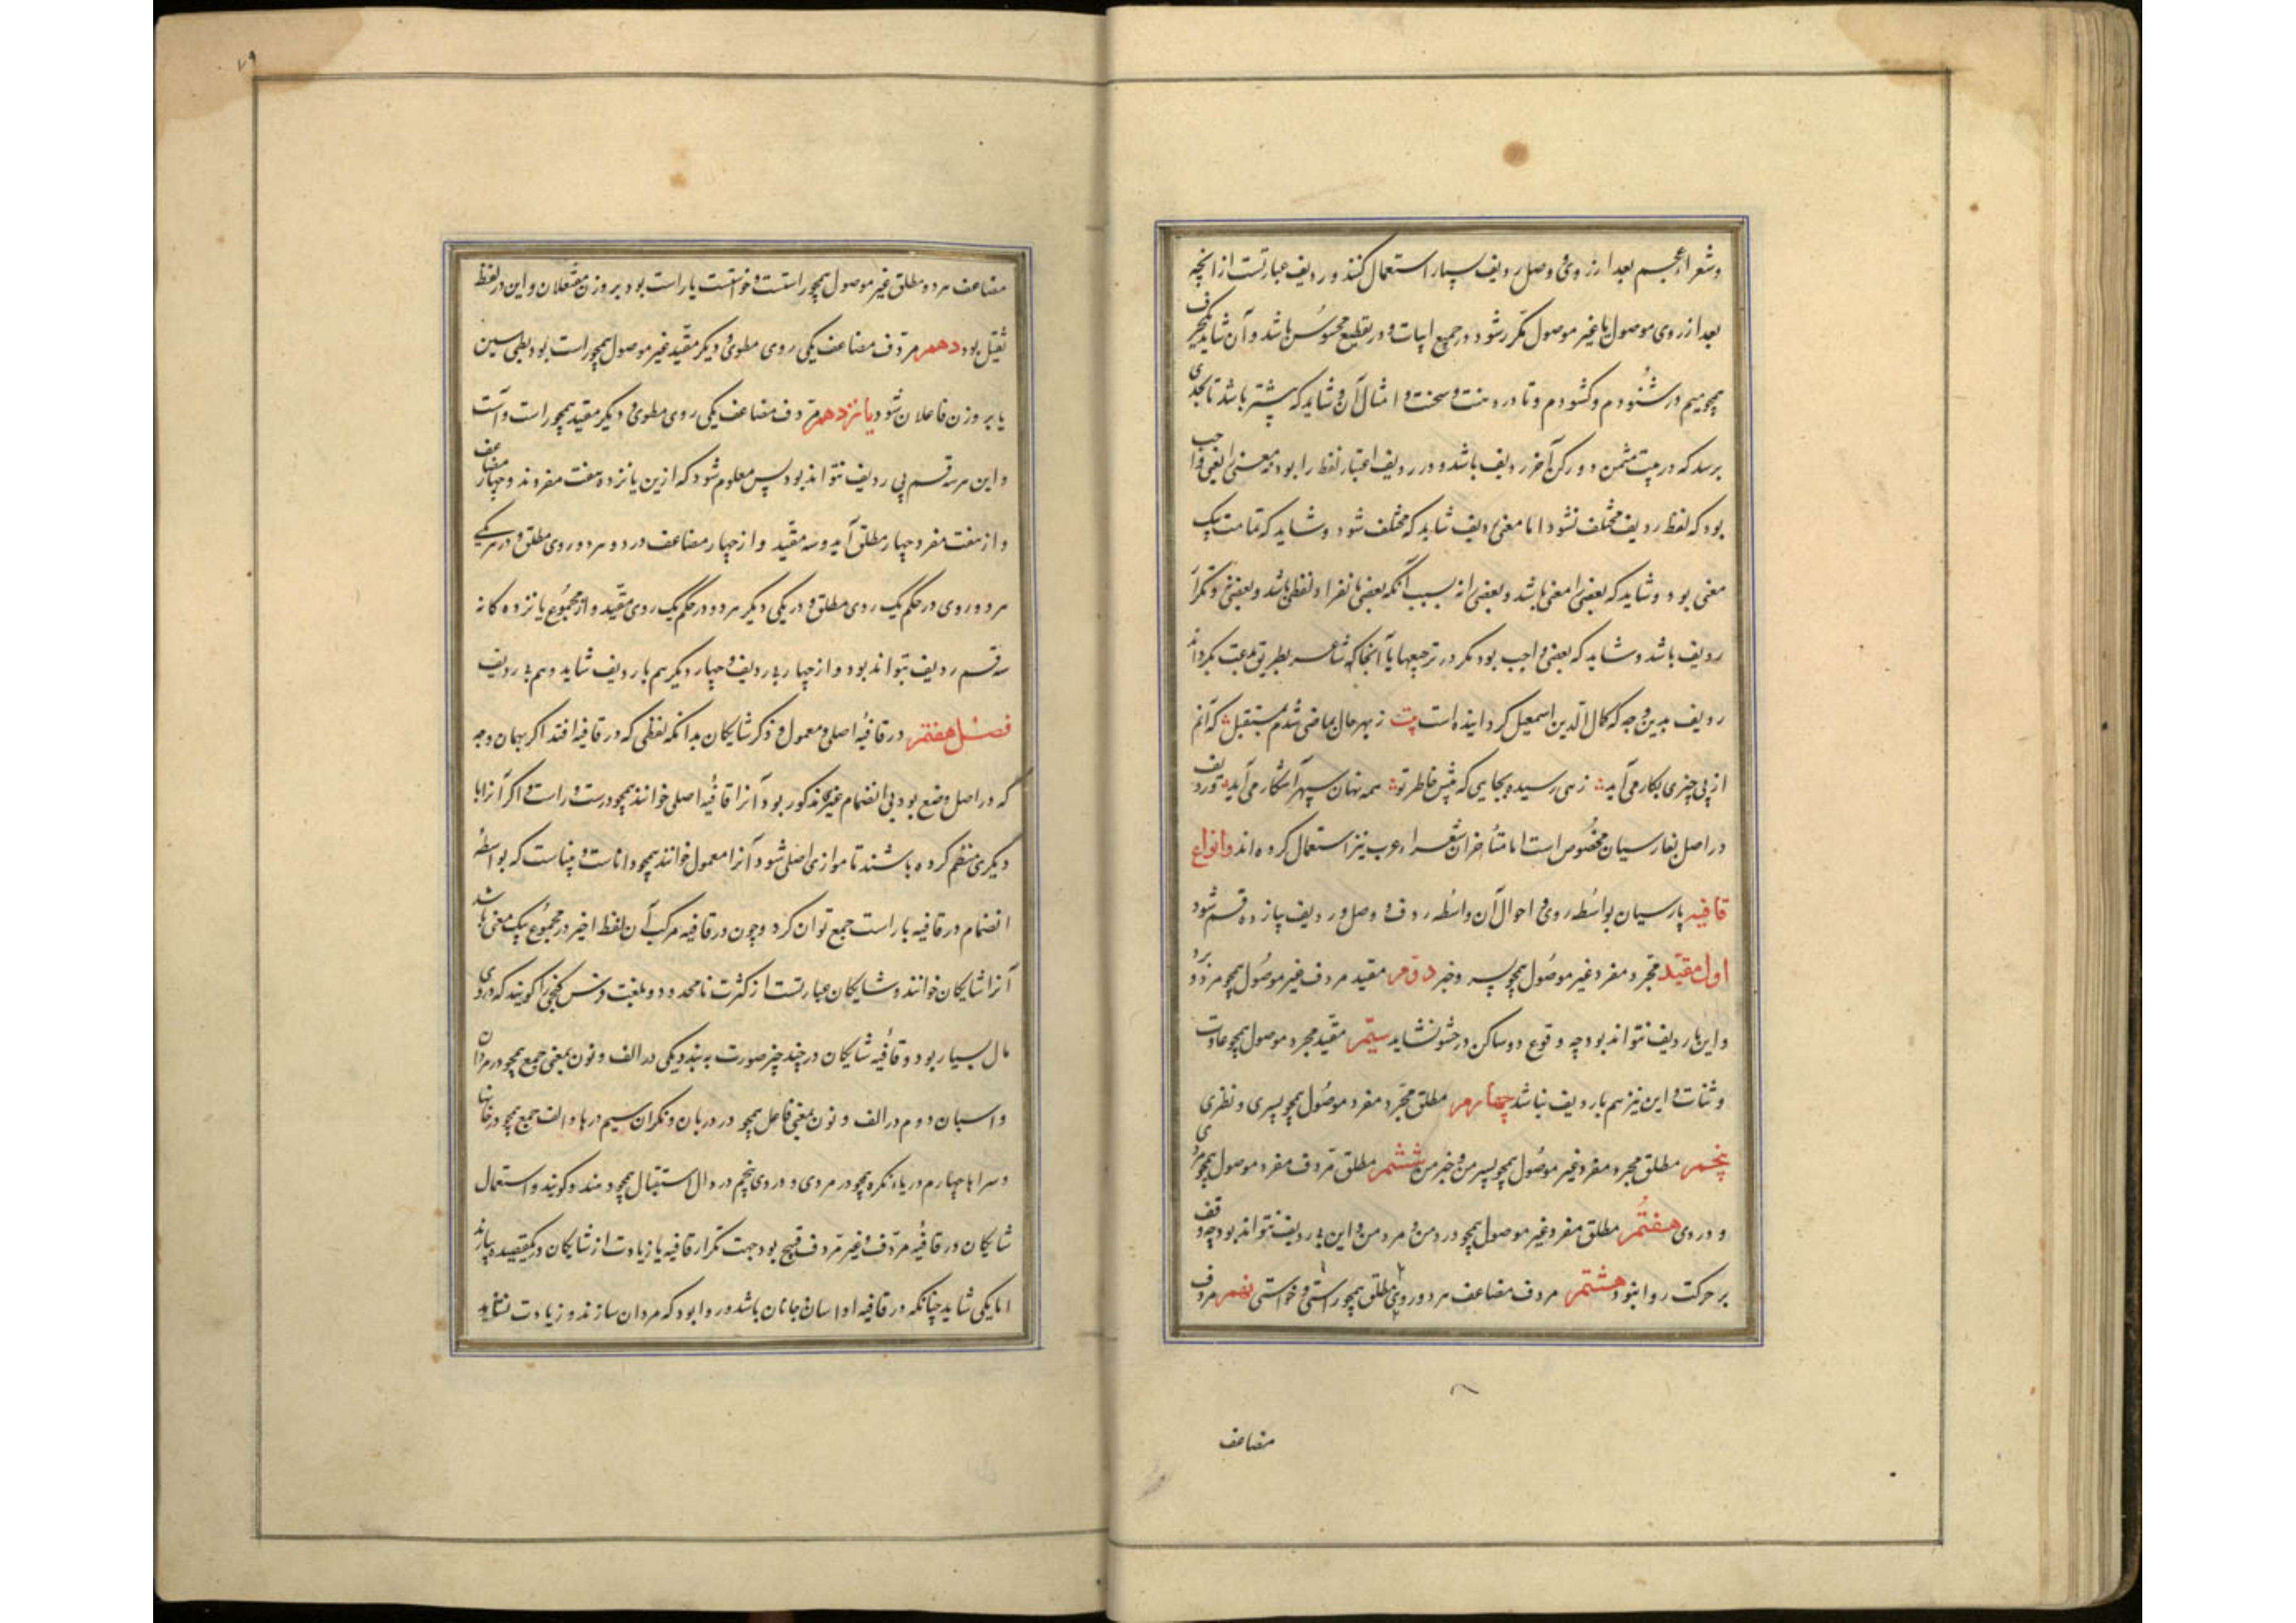 وشعراء عجم بعد از روی و وصل ردیف بسیار استعمال کنند و ردیف عبارتست از آنچه
بعد از روی موصول یا غیر موصول مکرر شود در جمیع ابیات و در تقطیع محسوس باشد و آن شاید یکحرف
همچو میم در شنودم و کشودم و تا در و سخت و امثال آن و شاید که بیشتر باشد تا بحدی
برسد که در بیت مثمن دو رکن آخر ردیف باشد و در ردیف اعتبار لفظ را بود نه معنی را یعنی واجب
بود که لفظ ردیف مختلف نشود اما معنی ردیف شاید که مختلف شود و شاید که تمامت بیک
معنی بود و شاید که بعضی را معنی باشد و بعضی را نه بسبب آنکه بعضی بانفراد لفظی باشد و بعضی جزو
ردیف باشد و شاید که بعضی واجب بود مکر در ترجیعها یا آنجا که شاعر بطریق بدعت بکرداند
ردیف بدین وجه که کمال الدین اسمعیل کردانیده است بیت ز بهر حال بماضی شدم بمستقبل که آنم
از پی چیزی بکار می آید زهی رسیده بجایی که پیش خاطر تو همه نهان سپهر آشکار می آید و ردیف
در اصل بفارسیان مخصوص است اما متأخران شعراء عرب نیز استعمال کرده اند وانواع
قافیه پارسیان بواسطه روی و احوال آن و اسطه ردف و وصل و ردیف پانزده قسم شود
اول مقید مجرد مفرد غیر موصول همچو پسر و خبر دوم مقید مردف غیر موصول همچو مرد و برد
و این با ردیف نتواند بود چه وقوع دو ساکن در حشو نشاید سیم مقید مجرد موصول همچو عادت
و ثنات و این نیز هم با ردیف نباشد چهارم مطلق مجرد مفرد موصول همچو پسری و نظری
پنجم مطلق مجرد مفرد غیر موصول همچو پسر من و خبر من ششم مطلق مردف مفرد موصول همچو مردی
و دردی هفتم مطلق مفرد غیر موصول همچو درد من و مرد من و این بی ردیف نتواند بود چه وقف
بر حرکت روا نبود هشتم مردف مضاعف هر دو روی مطلق همچو راستی و خواستی نهم مردف
مضاعف
مضاعف هر دو مطلق غیر موصول همچو راستست و خواستست یا راست بود بر وزن مفتعلان و این در لفظ
ثقیل بود دهم مردف مضاعف یکی روی مطوی و دیکر مقید غیر موصول همچو راست بود بطی سین
یا بر وزن فاعلان شود یانزدهم مردف مضاعف یکی روی مطوی و دیکر مقید همچو راست و
و این هر سه قسم بی ردیف نتواند بود پس معلوم شود که ازین یانزده هفت مفردند و چهار مضاعف
و از هفت مفرد چهار مطلق آید و سه مقید و از چهار مضاعف در دو هر دو روی مطلق و در یکی
هر دو روی در حکم یک روی مطلق و در یکی دیکر هر دو در حکم یک روی مقید و از مجموع یانزده کانه
سه قسم ردیف نتواند بود و از چهار بی ردیف و چهار دیکر هم با ردیف شاید و هم بی ردیف
فصل هفتم در قافیه اصلی و معمول و ذکر شایکان بدانکه لفظی که در قافیه افتد اکر بهمان وجه
که در اصل وضع بود بی انضمام غیر مذکور بود آنرا قافیه اصلی خوانند همچو درست و راست و اکر آنرا با
دیکری منظم کرده باشند تا موازی اصلی شود آنرا معمول خوانند همچو داناست و بیناست که بواسطه
انضمام در قافیه با راست جمع توان کرد و چون در قافیه مرکب آن لفظ اخیر در مجموع بیک معنی باشد
آنرا شایکان خوانند و شایکان عبارتست از کثرت نامحدود و بلغت فرس کنجی را کویند که دروی
مال بسیار بود و قافیه شایکان در چند چیز صورت بندد یکی در الف و نون بمعنی جمع همچو در مردان
و اسبان دوم در الف و نون بمعنی فاعل همچو در دربان و نکران سیم در ها و الف جمع همچو در خانها
و سراها چهارم در یاء نکره همچو در مردی و دردی پنجم در دال استقبال همچو دهند و کویند و استعمال
شایکان در قافیه مردف و غیر مردف قبیح بود جهت تکرار قافیه یا زیادت از شایکان در یک قصیده نیارند
اما یکی شاید چنانکه در قافیه او اسان جانان باشد و روا بود که مردان سازند و زیادت نشاید